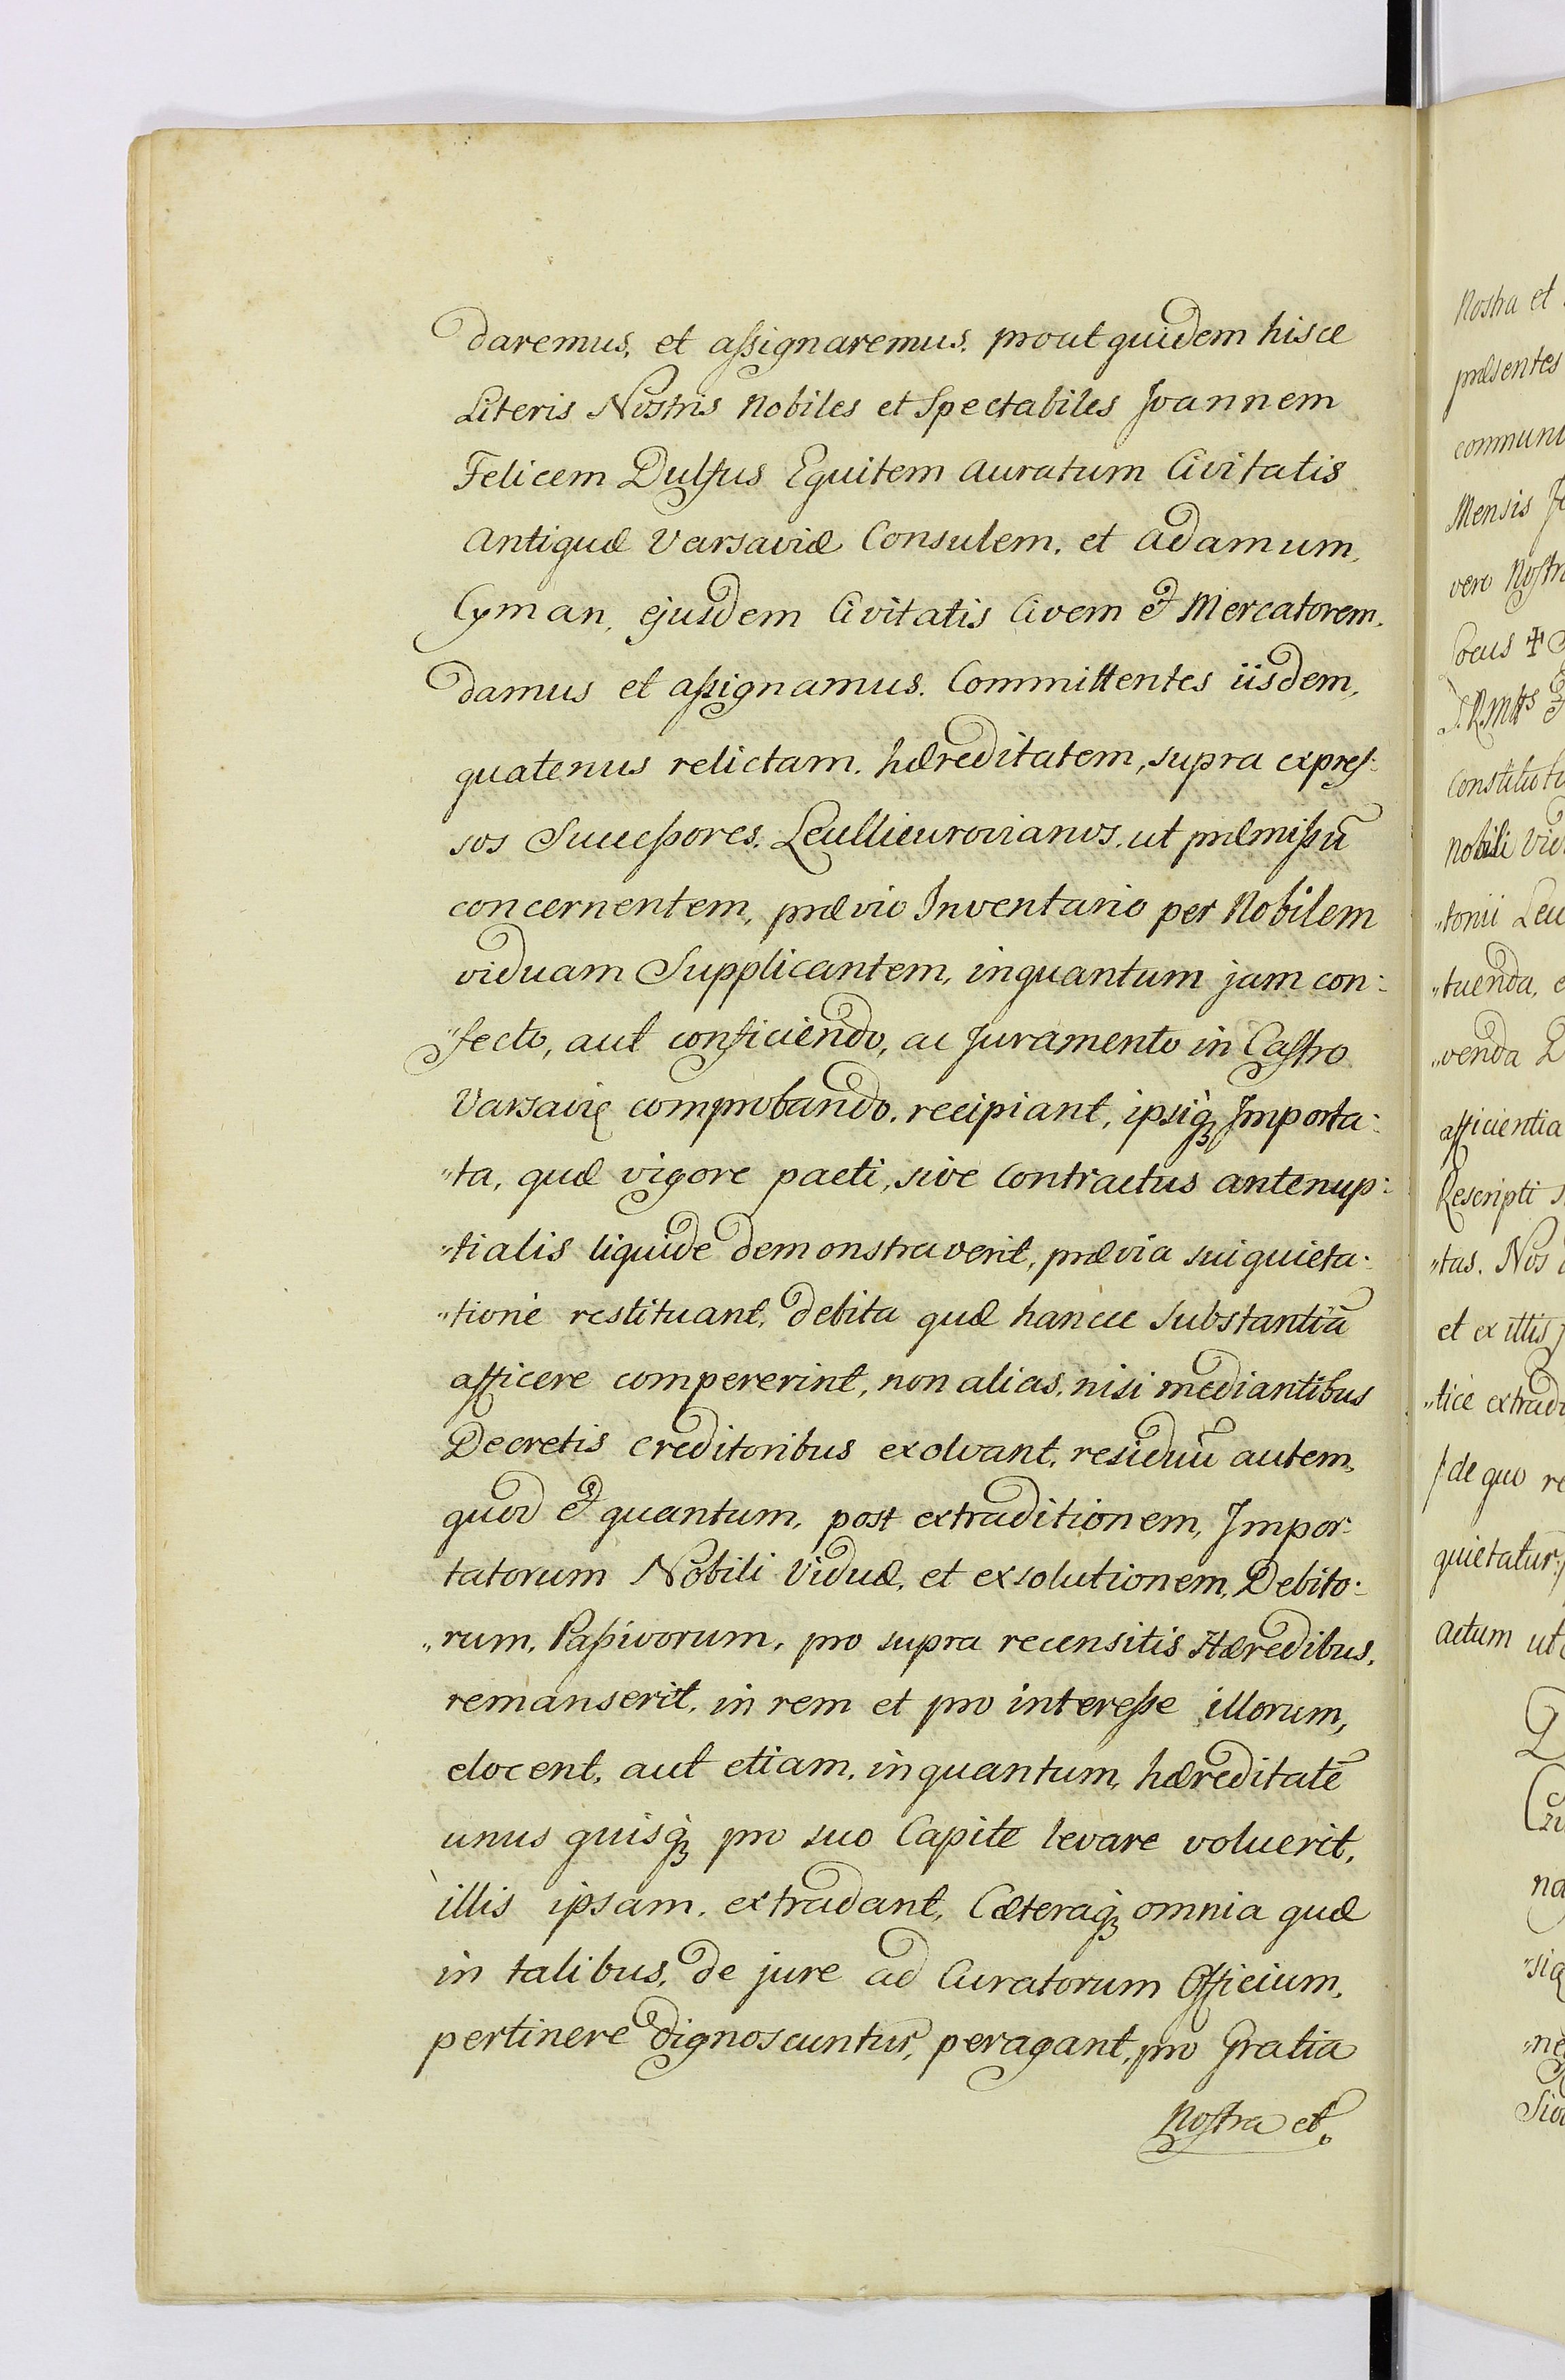 daremus, et aſsignaremus. prout quidem hisce
Literis Nostris Nobiles et Spectabiles Joannem
Felicem Dulfus Equitem Auratum Civitatis
Antiquæ Varsaviæ Consulem, et Adamum,
Cyman, ejusdem Civitatis Civem et Mercatorem.
damus et aſsignamus. Committentes iisdem,
quatenus relictam. hæreditatem, supra expreſ:
sos Succeſsores. Leullieurovianos, ut præmiſsũ
concernentem, prævio Inventario per Nobilem
viduam Supplicantem, inquantum jam con:
„fecto, aut conficiendo, ac Juramento in Castro
Varsavię comprobando. recipiant, ipsiq; Importa:
„ta, quæ vigore pacti, sive Contractus antenup:
„tialis liquide demonstraverit, prævia sui quieta:
„tione restituant, debita quæ hancce Substantiã
afficere compererint, non alias, nisi mediantibus
Decretis Creditoribus exolvant, residuũ autem,
quod et quantum, post extraditionem, Impor:
tatorum Nobili Viduæ, et exsolutionem, Debito:
„rum, Paſsivorum, pro supra recensitis Hæredibus,
remanserit, in rem et pro intereſse illorum,
elocent, aut etiam, inquantum, hæreditatẽ
unus quisq; pro suo Capite levare voluerit,
illis ipsam. extradant, Cæteraq; omnia quæ
in talibus, de jure ad Curatorum Officium,
pertinere dignoscuntur, peragant, pro Gratia
Nostra et
Nostra et
præsentes
communi
Mensis
vero Nostr
Locus ✝
Constitut
Nobili Vid
„tonii Leu
„tuenda, e
„venda
afficientia
Rescripti s
„tas. Nos
et ex illis
„tice extrad
de quo re
quietatur
Actum ut